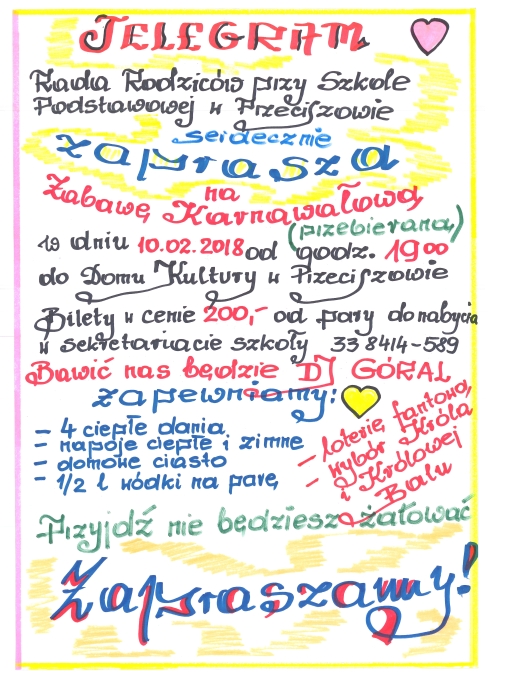 TELEGRAM
Rada Rodziców przy Szkole
Podstawowej w Przeciszowie
serdecznie
zaprasza
na
Zabawę Karnawałową
(przebieraną)
w dniu 10.02.2018 od godz. 19⁰⁰
do Domu Kultury w Przeciszowie
Bilety w cenie 200,- od pary do nabycia
w sekretariacie szkoły 33 8414-589
Bawić nas będzie DJ GÓRAL
zapewniamy!
- 4 ciepłe dania
- napoje ciepłe i zimne
- domowe ciasto
- 1/2 l wódki na parę
- loterię fantową,
- wybór Króla
i Królowej
Balu
Przyjdź nie będziesz żałować
Zapraszamy!